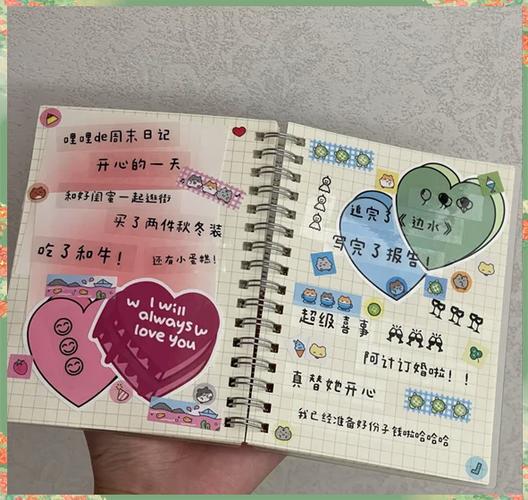 哩哩de周末日记
开心的一天
和好闺蜜一起逛街
买了两件秋冬装
吃了和牛!
还有小蛋糕!
w I will
always w
love you
追完了《边水》
写完了报告!
超级喜事
阿计订婚啦!!
真替她开心
我已经准备好份子钱啦哈哈哈